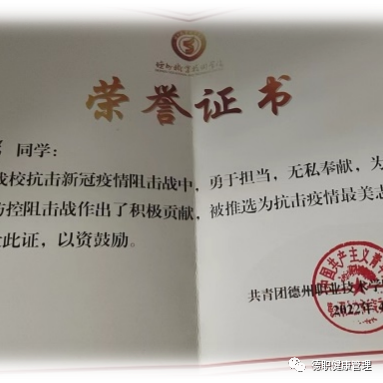 荣誉证书
同学:
我校抗击新冠疫情阻击战中,勇于担当,无私奉献,为
防控阻击战作出了积极贡献,被推选为抗击疫情最美志
此证,以资鼓励。
共青团德州职业技术学
2022年
德职健康管理